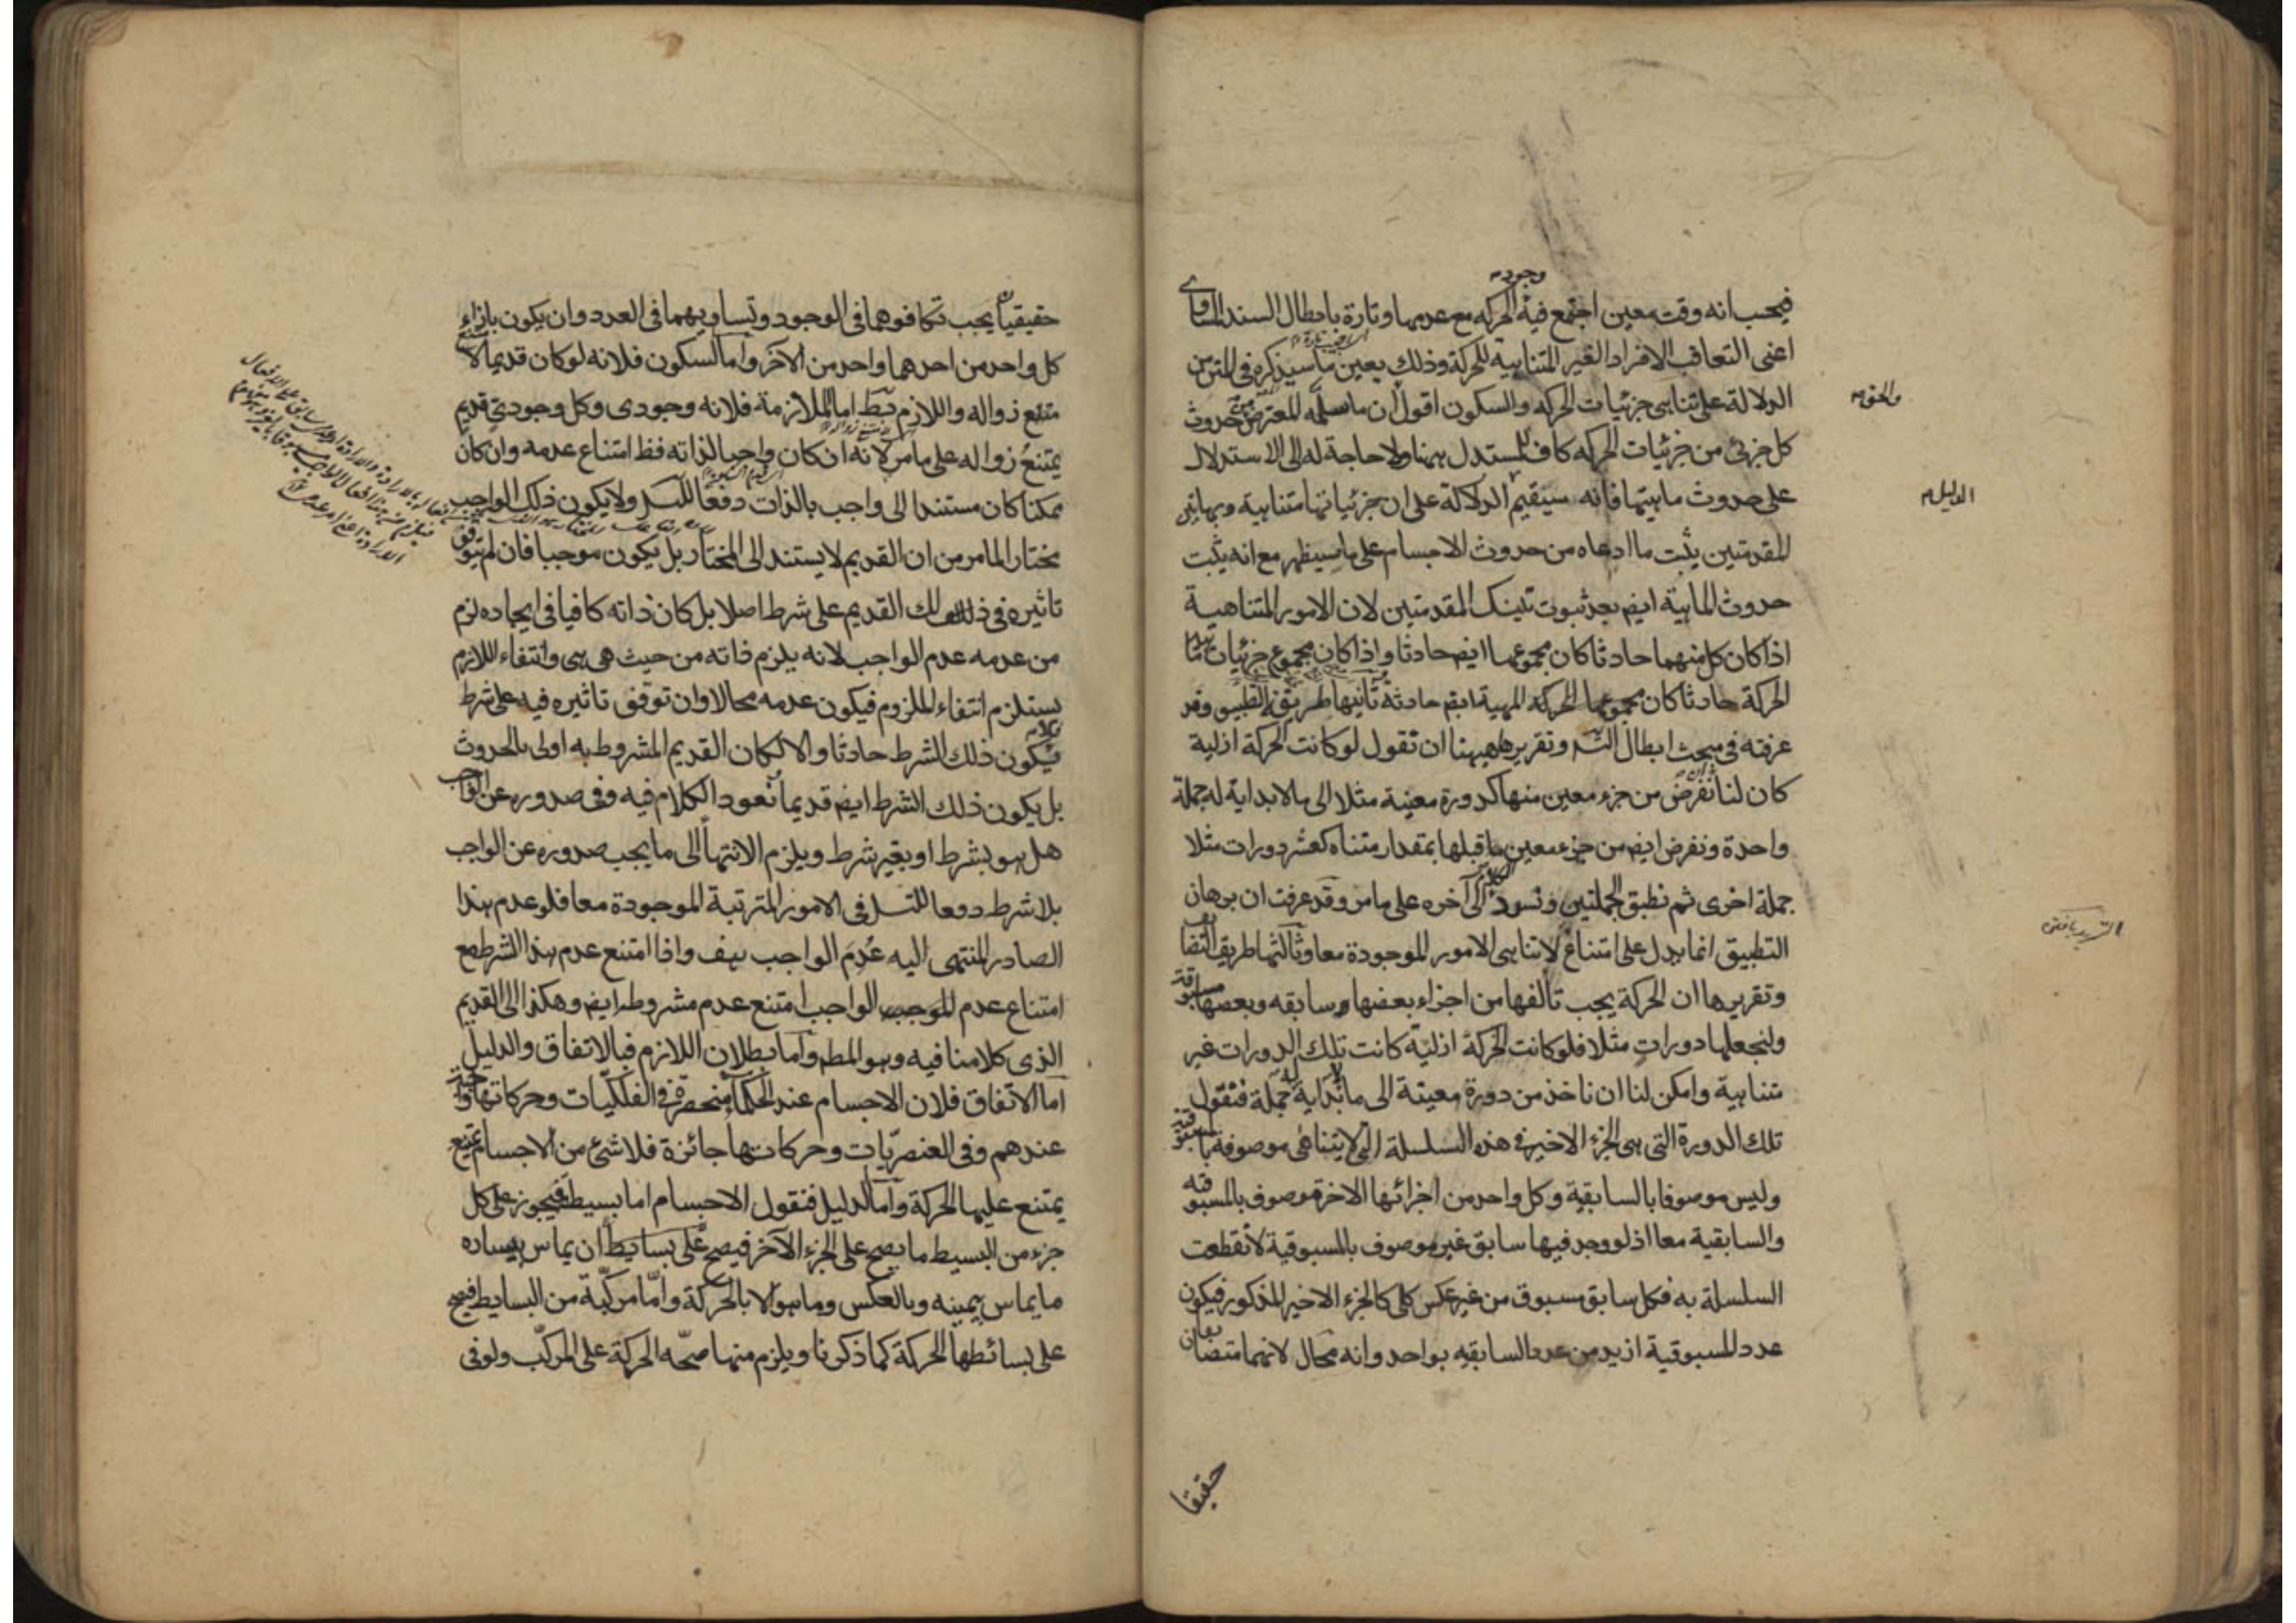 وجوده
فيجب انه وقت معين اجتمع فيه الحركة مع عدمها وتارة بابطال السند المساوى
اعنى التعاقب الافراد الغير المتناهية للحركة وذلك بعين ما سيذكره فى المتن من
الدلالة على تناهى جزئيات الحركة والسكون اقول ان ما سلمه المعترض من حدوث
كل جزئى من جزئيات الحركة كاف للمستدل ههنا ولا حاجة له الى الاستدلال
على حدوث ماهيتها فانه سيقيم الدلالة على ان جزئياتها متناهية وبهاتين
المقدمتين يثبت ما ادعاه من حدوث الاجسام على ما سيظهر مع انه يثبت
حدوث الماهية ايضا بعد ثبوت تينك المقدمتين لان الامور المتناهية
اذا كان كل منهما حادثا كان مجموعها ايضا حادثا واذا كان مجموع جزئيات
الحركة حادثا كان الحركة المهية ايضا حادثة ثانيها طريقة التطبيق وقد
عرفته فى مبحث ابطال التسـ وتقريرها ههنا ان نقول لو كانت الحركة ازلية
كان لنا ان نفرض من جزء معين منها كدورة معينة مثلا الى ما لا بداية له جملة
واحدة ونفرض ايضا من جزء معين ما قبلها بمقدار متناه كعشر دورات مثلا
جملة اخرى ثم نطبق الجملتين ونسوق الكلام الى آخره على ما مر وقد عرفت ان برهان
التطبيق انما يدل على امتناع لا تناهى الامور الموجودة معا وثالثها طريق التضايف
وتقريرها ان الحركة يجب تألفها من اجزاء بعضها سابقه وبعضها مسبوقة
ولنجعلها دورات مثلا فلو كانت الحركة ازلية كانت تلك الدورات غير
متناهية وامكن لنا ان ناخذ من دورة معينة الى ما لا بداية له جملة فنقول
تلك الدورة التى هى الجزء الاخير فى هذه السلسلة التى لا يتناهى موصوفة بالمسبوقية
وليس موصوفا بالسابقية وكل واحد من اجزائها الاخرة موصوف بالمسبوقية
والسابقية معا اذ لو وجد فيها سابق غير موصوف بالمسبوقية لانقطعت
السلسلة به فكل سابق مسبوق من غير عكس كلى كالجزء الاخير المذكور فيكون
عدد المسبوقية ازيد من عدد السابقيه بواحد وانه محال لانهما متضايفان
حقيقيا
الدليل
حقيقيان يجب تكافوهما فى الوجود وتساويهما فى العدد وان يكون بازاء
كل واحد من احدهما واحد من الآخر واما السكون فلانه لو كان قديما لا
متنع زواله واللازم بط اما الملازمة فلانه وجودى وكل وجودى قديم
يمتنع زواله على ما مر لانه ان كان واجبا لذاته فظ امتناع عدمه وان كان
ممكنا كان مستندا الى واجب بالذات دفعا للتسـ ولا يكون ذلك الواجب
مختارا لما مر من ان القديم لا يستند الى المختار بل يكون موجبا فان لم يتوقف
تاثيره فى ذلك القديم على شرط اصلا بل كان ذاته كافيا فى ايجاده لزم
من عدمه عدم الواجب لانه يلزم ذاته من حيث هى هى وانتفاء اللازم
يستلزم انتفاء الملزوم فيكون عدمه محالا وان توقف تاثيره فيه على شرط
فلا يكون ذلك الشرط حادثا والا لكان القديم المشروط به اولى بالحدوث
بل يكون ذلك الشرط ايضا قديما نعود الكلام فيه وفى صدوره عن الواجب
هل هو بشرط او بغير شرط ويلزم الانتهاء الى ما يجب صدوره عن الواجب
بلا شرط دفعا للتسـ فى الامور المترتبة الموجودة معا فلو عدم هذا
الصادر المنتهى اليه عدم الواجب هف واذا امتنع عدم هذا الشرط مع
امتناع عدم الموجب الواجب امتنع عدم مشروطه ايضا وهكذا الى القديم
الذى كلامنا فيه وهو المط واما بطلان اللازم فبالاتفاق والدليل
اما الاتفاق فلان الاجسام عند الحكماء منحصرة فى الفلكيات وحركاتها واجبة
عندهم وفى العنصريات وحركاتها جائزة فلا شئ من الاجسام يمتنع
يمتنع عليها الحركة واما الدليل فنقول الاجسام اما بسيط فيجوز على كل
جزء من البسيط ما يصح على الجزء الآخر فيصح على بسايط ان يماس بيساره
ما يماس بيمينه وبالعكس وما هو الا بالحركة واما مركبة من البسايط فيصح
على بسائطها الحركة كما ذكرنا ويلزم منها صحة الحركة على المركب ولو فى